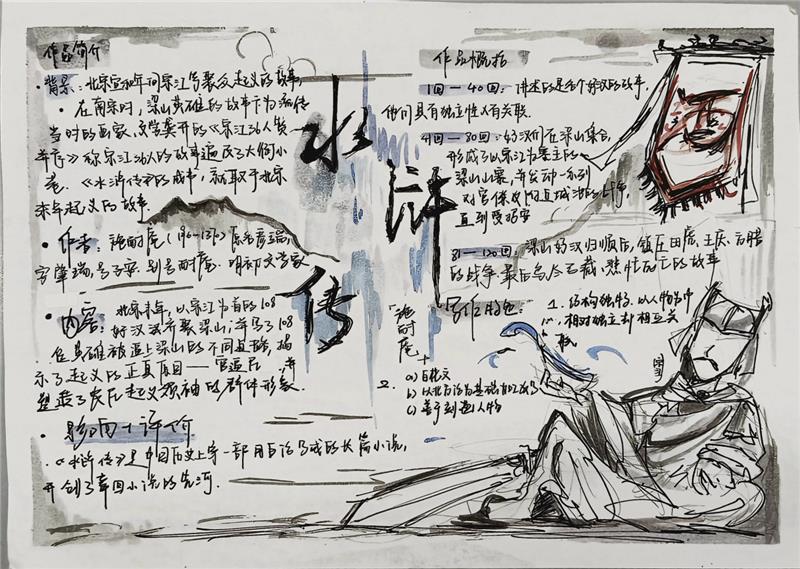 作品简介
背景：北宋宣和年间宋江等聚众起义的故事，
在南宋时，梁山英雄的故事广为流传
当时的画家、文学龚开的《宋江36人赞
并序》称宋江36人的故事遍及了大街小
巷。《水浒传》的成书，就取于北宋
末年起义的故事
作者：施耐庵（1296-1370）原名彦端，
字肇瑞，号子安，别号耐庵。明初文学家
内容：北宋末年，以宋江为首的108
好汉 聚梁山，并写了108
位英雄被逼上梁山的不同 ，揭
示了起义的正真原因——官逼民 ，并
塑造了农民起义领袖的群体形象
影响+评价
《水浒传》是中国历史上第一部用白话写成的长篇小说，
开创了章回小说的先河.
水
浒
传
「施
耐
庵」
作品概括
1回—40回：讲述的是各个好汉的故事，
他们具有独立性又有关联.
41回—80回：好汉们在梁山集合，
形成了以宋江为寨主的
梁山山寨，并发动一系列
对官僚 城池的 ，
直到受招安
81—120回 梁山好汉归顺后，镇压田虎、王庆、方腊
的战争 最后 悲 的故事
写作特色：
1. 结构独特. 以人物为中
，相对独立却相互关
2.
a) 白话文
b) 以北方话为基础
c) 善于刻造人物